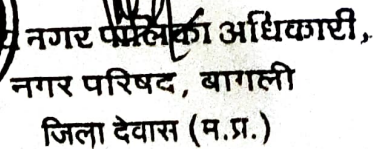 नगर पालिका अधिकारी,
नगर परिषद, बागली
जिला देवास (म.प्र.)